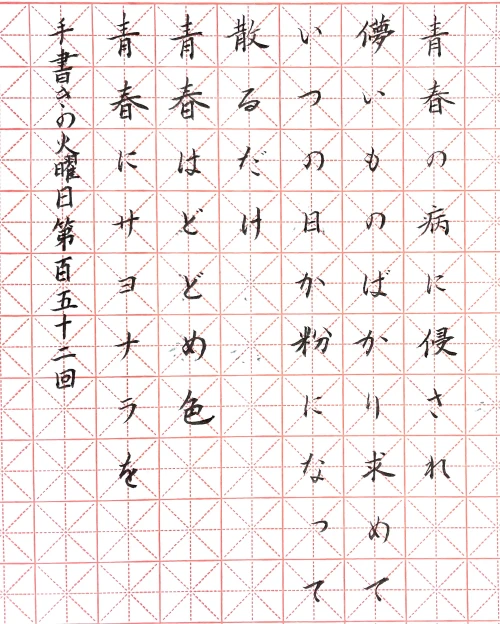 青春の病に侵され
儚いものばかり求めて
いつの日か粉になって
散るだけ
青春はどどめ色
青春にサヨナラを
手書きの火曜日第百五十二回